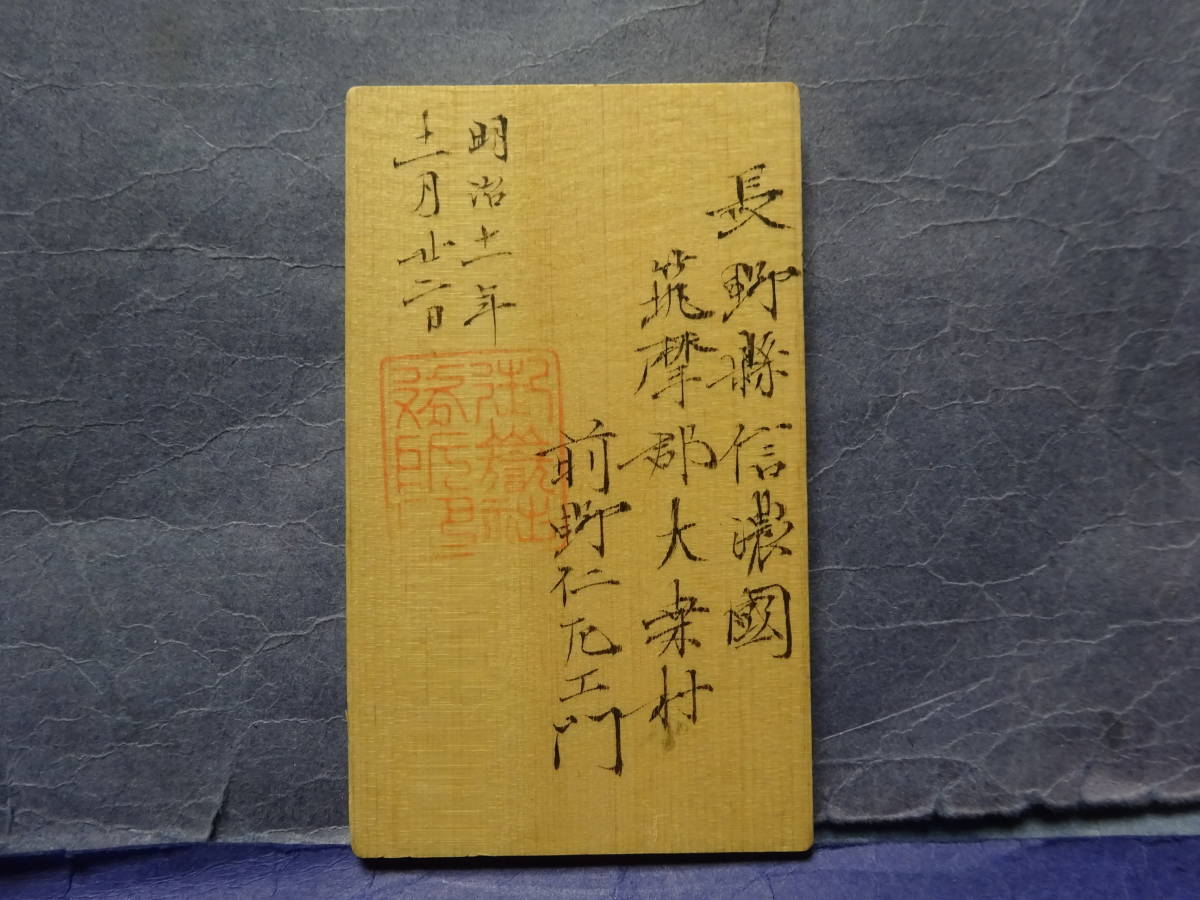 長野縣信濃國
筑摩郡大桒村
前野仁左エ門
明治十一年
十一月廿二日